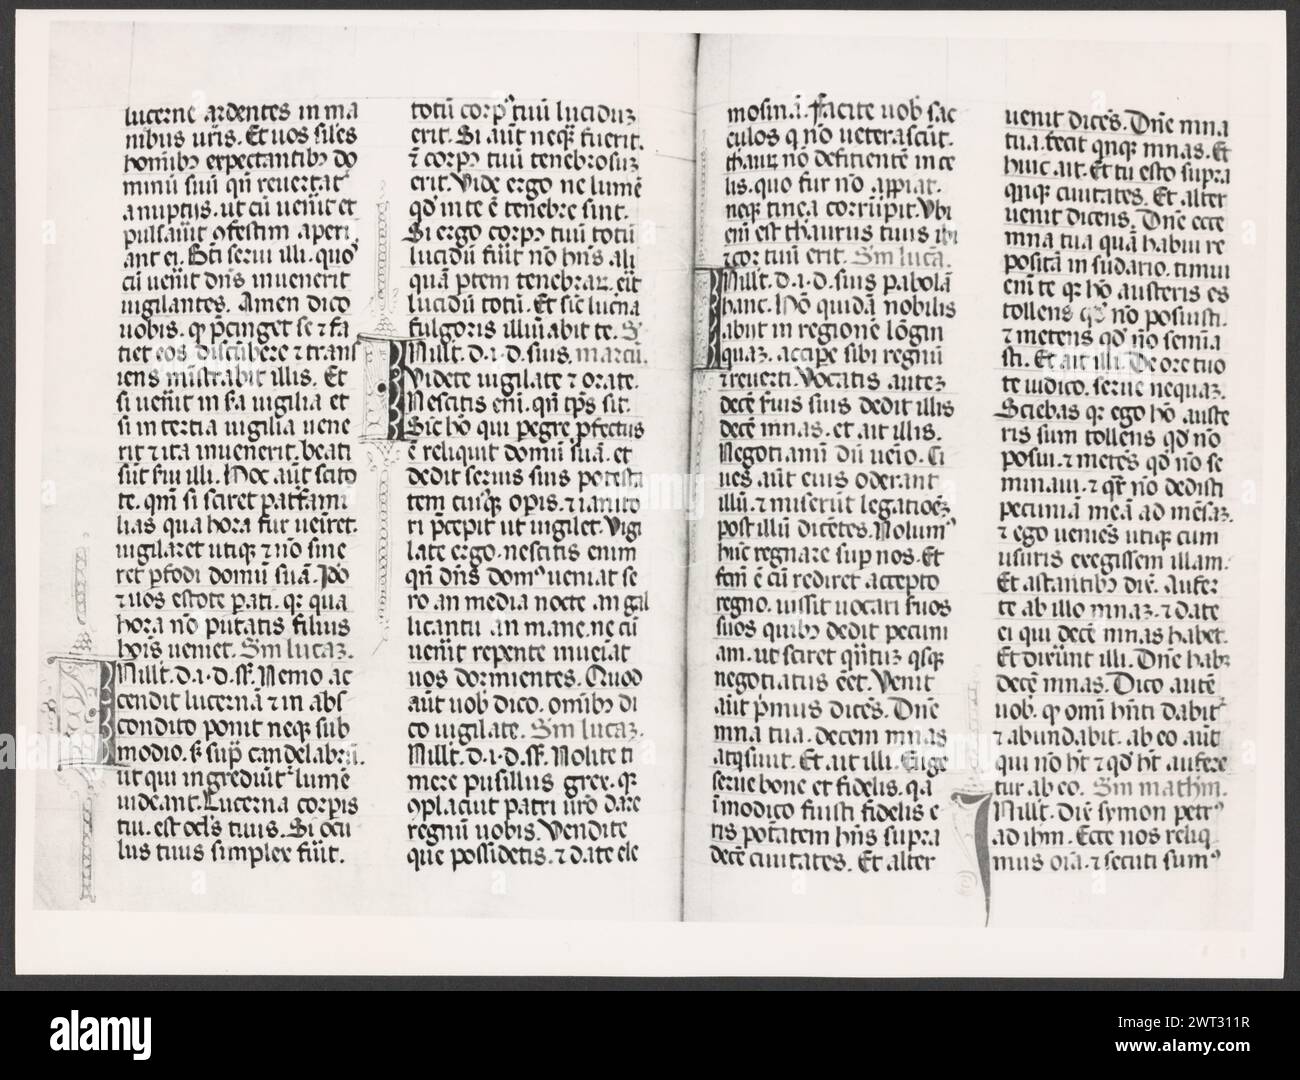 lucerne ardentes in ma
nibus ur̄is. Et uos sil̄es
hom̄ibꝫ expectantibꝫ do
minū suū qn̄ reuertat᷑
a nuptijs. ut cū uen̄it et
pulsau̅it ꝯfestim aperi
ant ei. Bt̄i serui illi. quos
cū uen̄it dn̄s inuenerit
uigilantes. Amen dico
uobis. qꝫ p̄cinget se ⁊ fa
ciet eos discūbere ⁊ trans
iens mı̄strabit illis. Et
si uen̄it in sꝫa uigilia et
si in tertia uigilia uene
rit ⁊ ita inuenerit. beati
sūt serui illi. Hoc aūt scito
te. qm̄ si sciret pat̄fami
lias qua hora fur uēiret.
uigilaret utiqꝫ ⁊ nō sine
ret ꝑfodi domū suā. Ido
⁊ uos estote ꝑati. qꝫ qua
hora nō putatis filius
hoīs ueniet. Sm̄ lucaꝫ.
In ill̄t. d. i. d. sꝫ. Nemo ac
cendit lucernā ⁊ in abs
condito ponit neqꝫ sub
modio. sꝫ suꝑ candelabrū.
ut qui ingrediūt᷑ lumē
uideant. Lucerna corꝑis
tui. est ocl̄s tuus. Si ocu
lus tuus simplex fu̅it.
totū corpꝰ tuū luciduꝫ
erit. Si aūt neqꝫ fuerit.
⁊ corpꝰ tuū tenebrosuꝫ
erit. Vide ergo ne lumē
qd̄ in te ē tenebre sint.
Si ergo corpꝰ tuū totū
lucidū fūit nō hn̄s ali
quā ꝑtem tenebraꝝ. eīt
lucidū totū. Et sic̄ luc̄na
fulgoris illūabit te. S̄
In ill̄t. d. i. d. suis. marcū.
Videte uigilate ⁊ orate.
Nescitis enī. qn̄ tp̄s sit.
Sic̄ hō qui pegre ꝓfectus
ē reliquit domū suā. et
dedit seruis suis potesta
tem cuiusqꝫ opis. ⁊ ianito
ri p̄cepit ut uigilet. Vigi
late ergo. nescitis enim
qn̄ dn̄s domꝰ ueniat se
ro an media nocte. an gal
licantu an mane. ne cū
uen̄it repente inueīat
uos dormientes. Quod
aūt uob̄ dico. omībꝫ di
co uigilate. Sm̄ lucaꝫ.
In ill̄t. d. i. d. sꝫ. Nolite ti
mere pusillus grex. qꝫ
ꝯplacuit patri ur̄o dare
regnū uobis. Vendite
que possidetis. ⁊ date ele
mosinā. Facite uob̄ sac
culos q nō ueterascūt.
thauꝝ nō deficientē in ce
lis. quo fur nō appiat.
neqꝫ tinea corrūpit. Vbi
enī est thaurus tuus ibi
⁊ cor tuū erit. Sm̄ lucā.
In ill̄t. d. i. d. suis ꝑabolā
hanc. Hō quidā nobilis
abiit in regionē lōgin
quaꝫ. accipe sibi regnū
⁊ reuerti. Vocatis auteꝫ
decē s̄uis suis dedit illis
decē mnas. et ait illis.
Negotiamī dū uēio. Ci
ues aūt eius oderant
illū. ⁊ miserūt legationēꝫ
post illū dicētes. Nolumꝰ
hūc regnare suꝑ nos. Et
fcm̄ ē cū rediret accepto
regno. iussit uocari s̄uos
suos quibꝫ dedit pecuni
am. ut sciret qn̄tuꝫ qsqꝫ
negotiatus ēet. Venit
aūt p̄mus dicēs. Dn̄e
mna tua. decem mnas
atqsiuit. Et ait illi. Euge
serue bone et fidelis. q̄a
ī modico fuisti fidelis e
ris ptātem hn̄s supra
decē ciuitates. Et alter
uenit dicēs. Dn̄e mna
tua. fecit qnqꝫ mnas. Et
huic ait. Et tu esto supra
qnqꝫ ciuitates. Et alter
uenit dicens. Dn̄e ecce
mna tua quā habui re
positā in sudario. timui
enī te qꝫ hō austeris es
tollens qd̄ nō posuisti.
⁊ metens qd̄ nō semina
sti. Et ait illi. De ore tuo
te iudico. serue nequaꝫ.
Sciebas qꝫ ego hō auste
ris sum tollens qd̄ nō
posui. ⁊ metēs qd̄ nō se
minaui. ⁊ qr̄e nō dedisti
pecuniā meā ad mēsaꝫ.
⁊ ego ueniēs utiqꝫ cum
usuris exegissem illam.
Et astantibꝫ dix̄. aufer
te ab illo mnaꝫ. ⁊ date
ei qui decē mnas habet.
Et dixūnt illi. Dn̄e habꝫ
decē mnas. Dico autē
uob̄. qꝫ omī hn̄ti dabit᷑
⁊ abundabit. ab eo aūt
qui nō ht̄ ⁊ qd̄ ht̄ aufere
tur ab eo. Sm̄ mathm̄.
In ill̄t. Dix̄ symon petrꝰ
ad ihm̄. Ecce nos reliq
mus oīa. ⁊ secuti sumꝰ
alamy
Image ID: 2WT311R
www.alamy.com